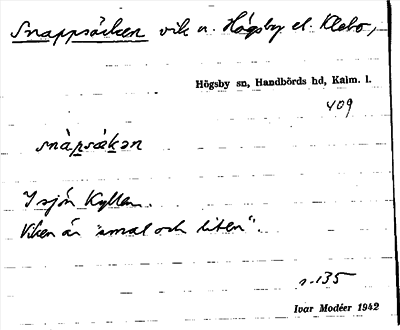 Snappsäcken vik u. Högsby el. Klebo,
Högsby sn, Handbörds hd, Kalm. l.
409
snàpsäkən
I sjön Kyllen.
Viken är "smal och liten".
s. 135
Ivar Modéer 1942